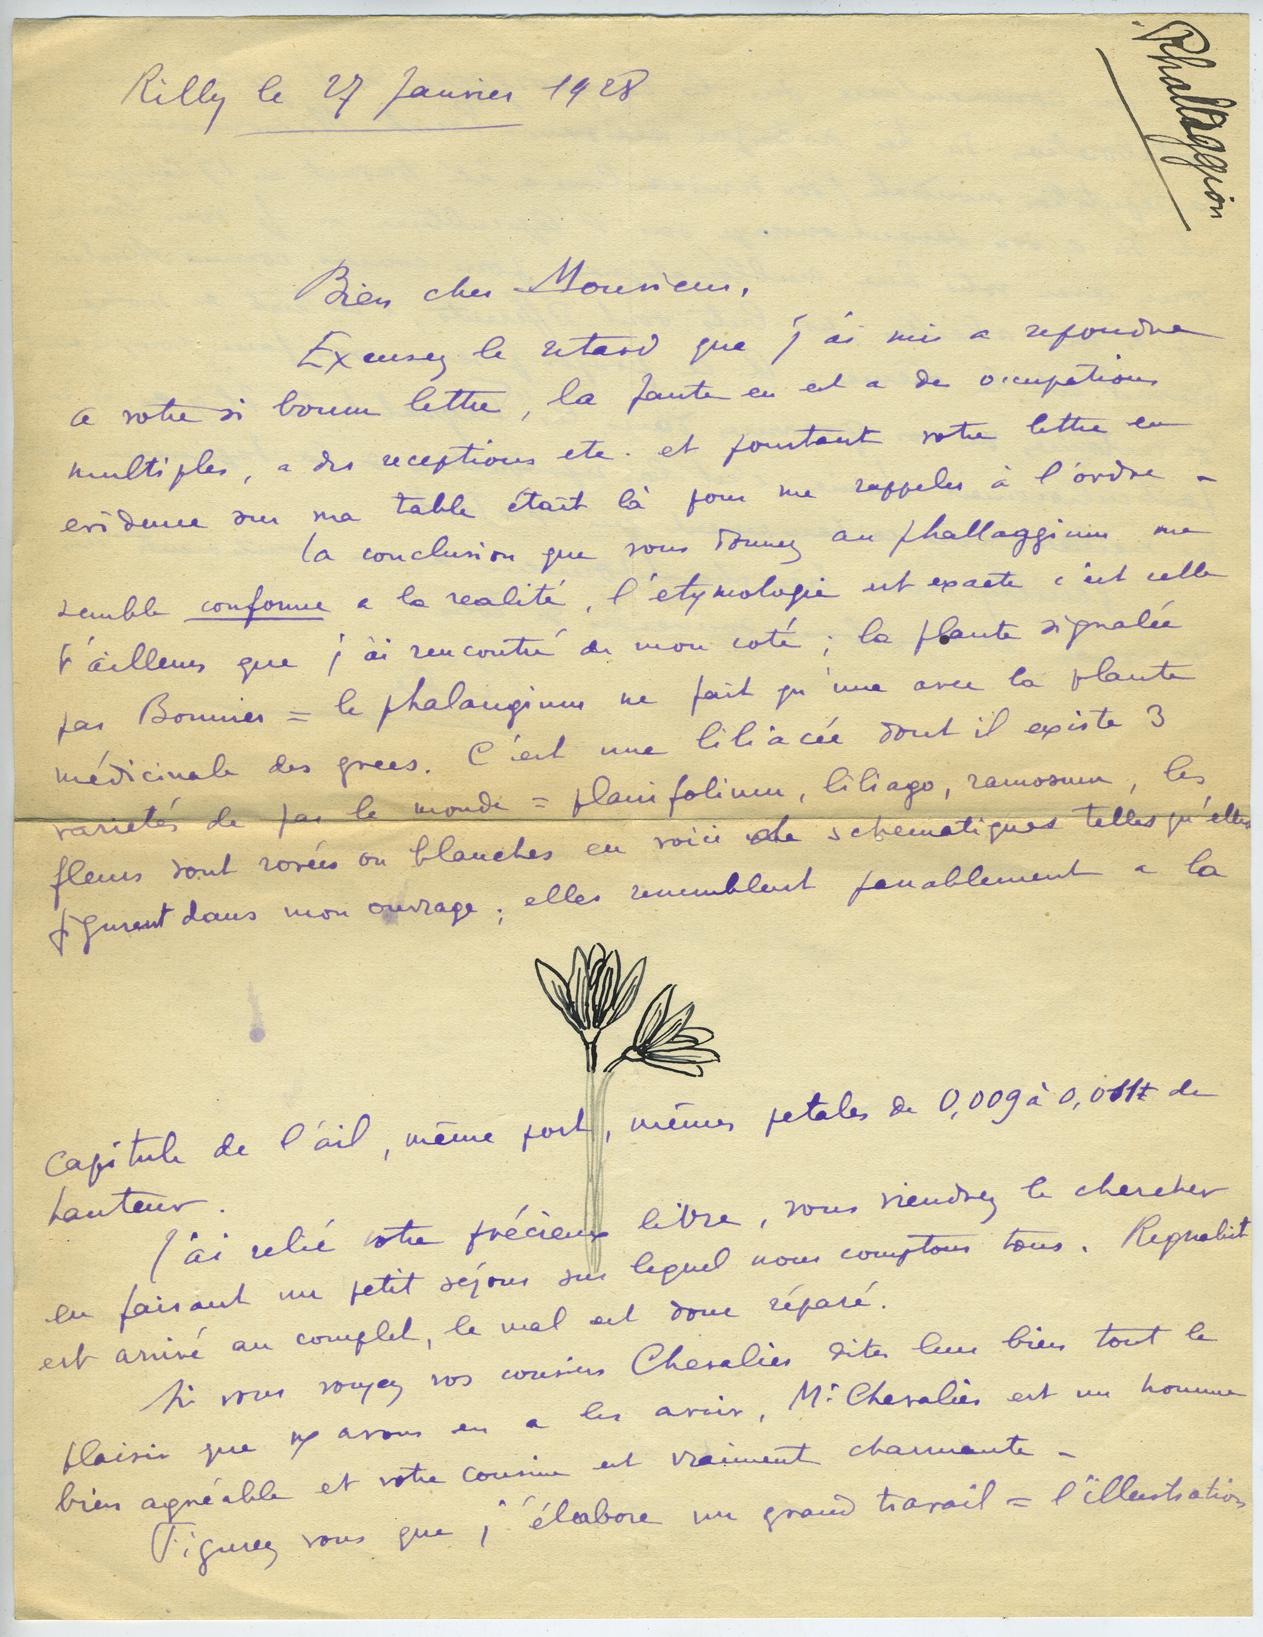 Phallaggion
Rilly le 27 Janvier 1928
Bien cher Monsieur,
Excusez le retard que j'ai mis a repondre
a votre si bonne lettre, la faute en est a de occupations
multiples, a des receptions etc. et pourtant votre lettre en
evidence sur ma table était là pour me rappeler à l'ordre -
La conclusion que vous donnez au phallaggium me
semble conforme a la realité, l'étymologie est exacte c'est celle
d'ailleurs que j'ai rencontré de mon coté ; la plante signalée
par Bonnier = le phalangium ne fait qu'une avec la plante
médicinale des grecs. C'est une liliacée dont il existe 3
varietés de par le monde = planifolium, liliago, ramosum, les
fleurs sont rosées ou blanches en voici de schematiques telles qu'elles
figurent dans mon ouvrage ; elles ressemblent passablement a la
capitule de l'ail, même port, mêmes petales de 0,009 à 0,011 de
hauteur.
J'ai relié votre précieux livre, vous viendrez le chercher
en faisant un petit séjour sur lequel nous comptons tous. Regnabit
est arrivé au complet, le mal est donc réparé.
Si vous voyez vos cousins Chevalier dites leur bien tout le
plaisir que ns avons eu a les avoir, Mr Chevalier est un homme
bien agréable et votre cousine est vraiment charmante -
Figurez vous que j'élabore un grand travail = l'illustration